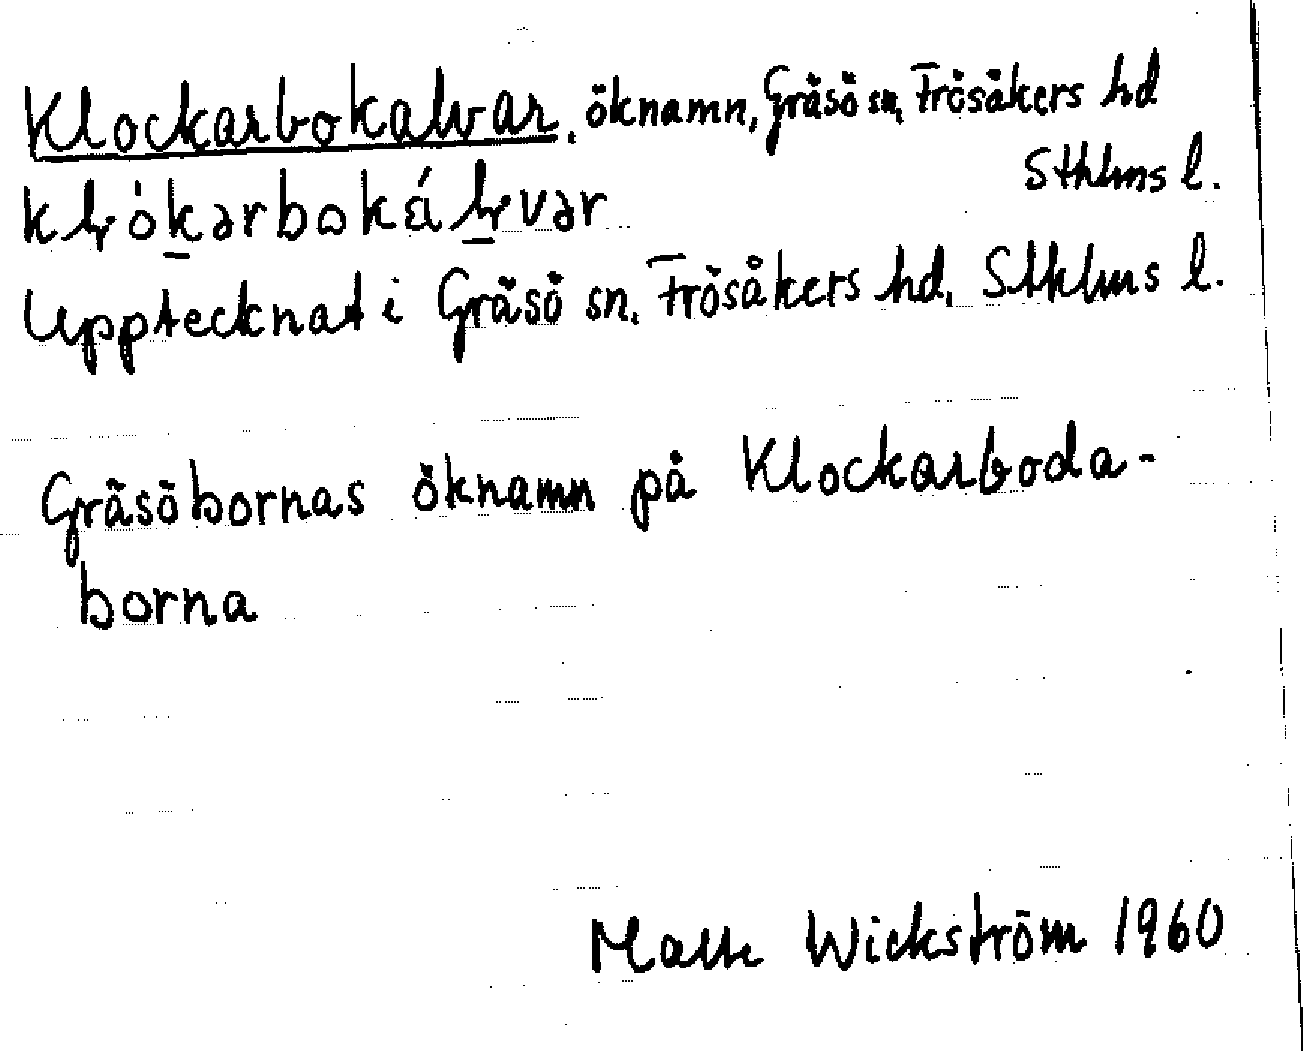 Klockarbokalvar, öknamn, Gräsö sn, Frösåkers hd
Sthlms l.
Upptecknat i Gräsö sn, Frösåkers hd, Sthlms l.
Gräsöbornas öknamn på Klockarboda-
borna
Wickström 1960